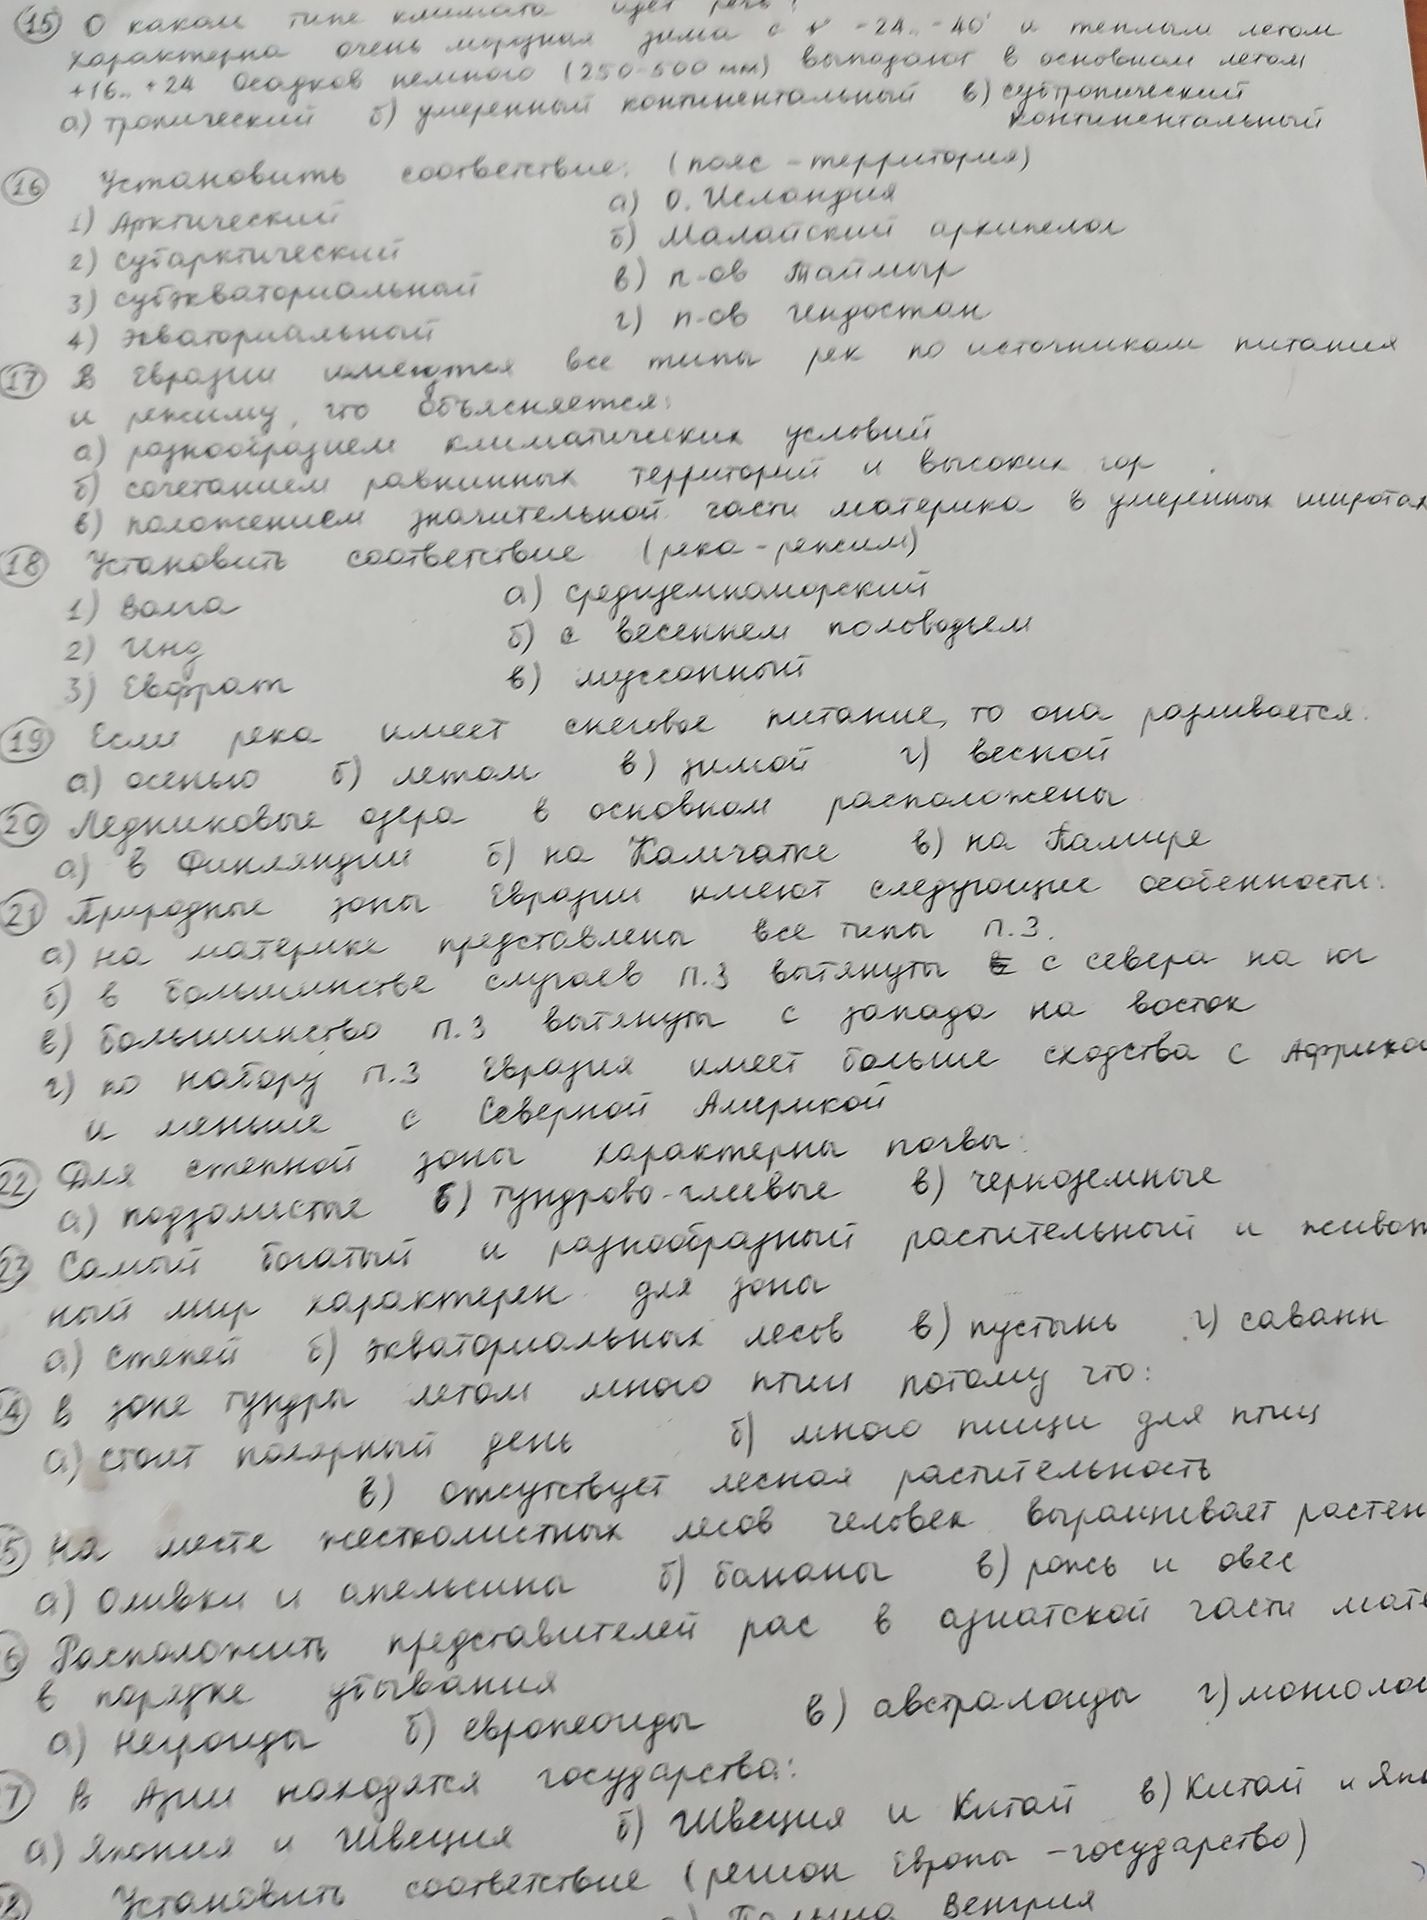 15 О каком типе климата идёт речь?
Характерна очень морозная зима с t° -24..-40° и теплым летом
+16..+24 Осадков немного (250-500 мм) выпадают в основном летом
а) тропический б) умеренный континентальный в) субтропический
континентальный
16 Установить соответствие: (пояс - территория)
1) Арктический а) о. Исландия
2) субарктический б) Малайский архипелаг
3) субэкваториальный в) п-ов Таймыр
4) экваториальный г) п-ов Индостан
17 В Евразии имеются все типы рек по источникам питания
и режиму, что объясняется:
а) разнообразием климатических условий
б) сочетанием равнинных территорий и высоких гор
в) положением значительной части материка в умеренных широтах
18 Установить соответствие (река - режим)
1) Волга а) средиземноморский
2) Инд б) с весеннем половодьем
3) Евфрат в) муссонный
19 Если река имеет снеговое питание, то она разливается:
а) осенью б) летом в) зимой г) весной
20 Ледниковые озера в основном расположены
а) в Финляндии б) на Камчатке в) на Памире
21 Природные зоны Евразии имеют следующие особенности:
а) на материке представлены все типы п.з.
б) в большинстве случаев п.з вытянуты с севера на юг
в) большинство п.з вытянуты с запада на восток
г) по набору п.з Евразия имеет больше сходства с Африкой
и меньше с Северной Америкой
22 Для степной зоны характерны почвы:
а) подзолистые б) тундрово-глеевые в) черноземные
23 Самый богатый и разнообразный растительный и живот
ный мир характерен для зоны
а) степей б) экваториальных лесов в) пустынь г) саванн
4 В зоне тундры летом много птиц потому что:
а) стоит полярный день б) много пищи для птиц
в) отсутствует лесная растительность
5 На месте жестколистных лесов человек выращивает растен
а) Оливки и апельсины б) бананы в) рожь и овес
6 Расположить представителей рас в азиатской части мате
в порядке убывания
а) негроиды б) европеоиды в) австралоиды г) монголои
7 В Азии находятся государства:
а) Япония и Швеция б) Швеция и Китай в) Китай и Япо
8 Установить соответствие (регион Европы - государство)
Польша, Венгрия